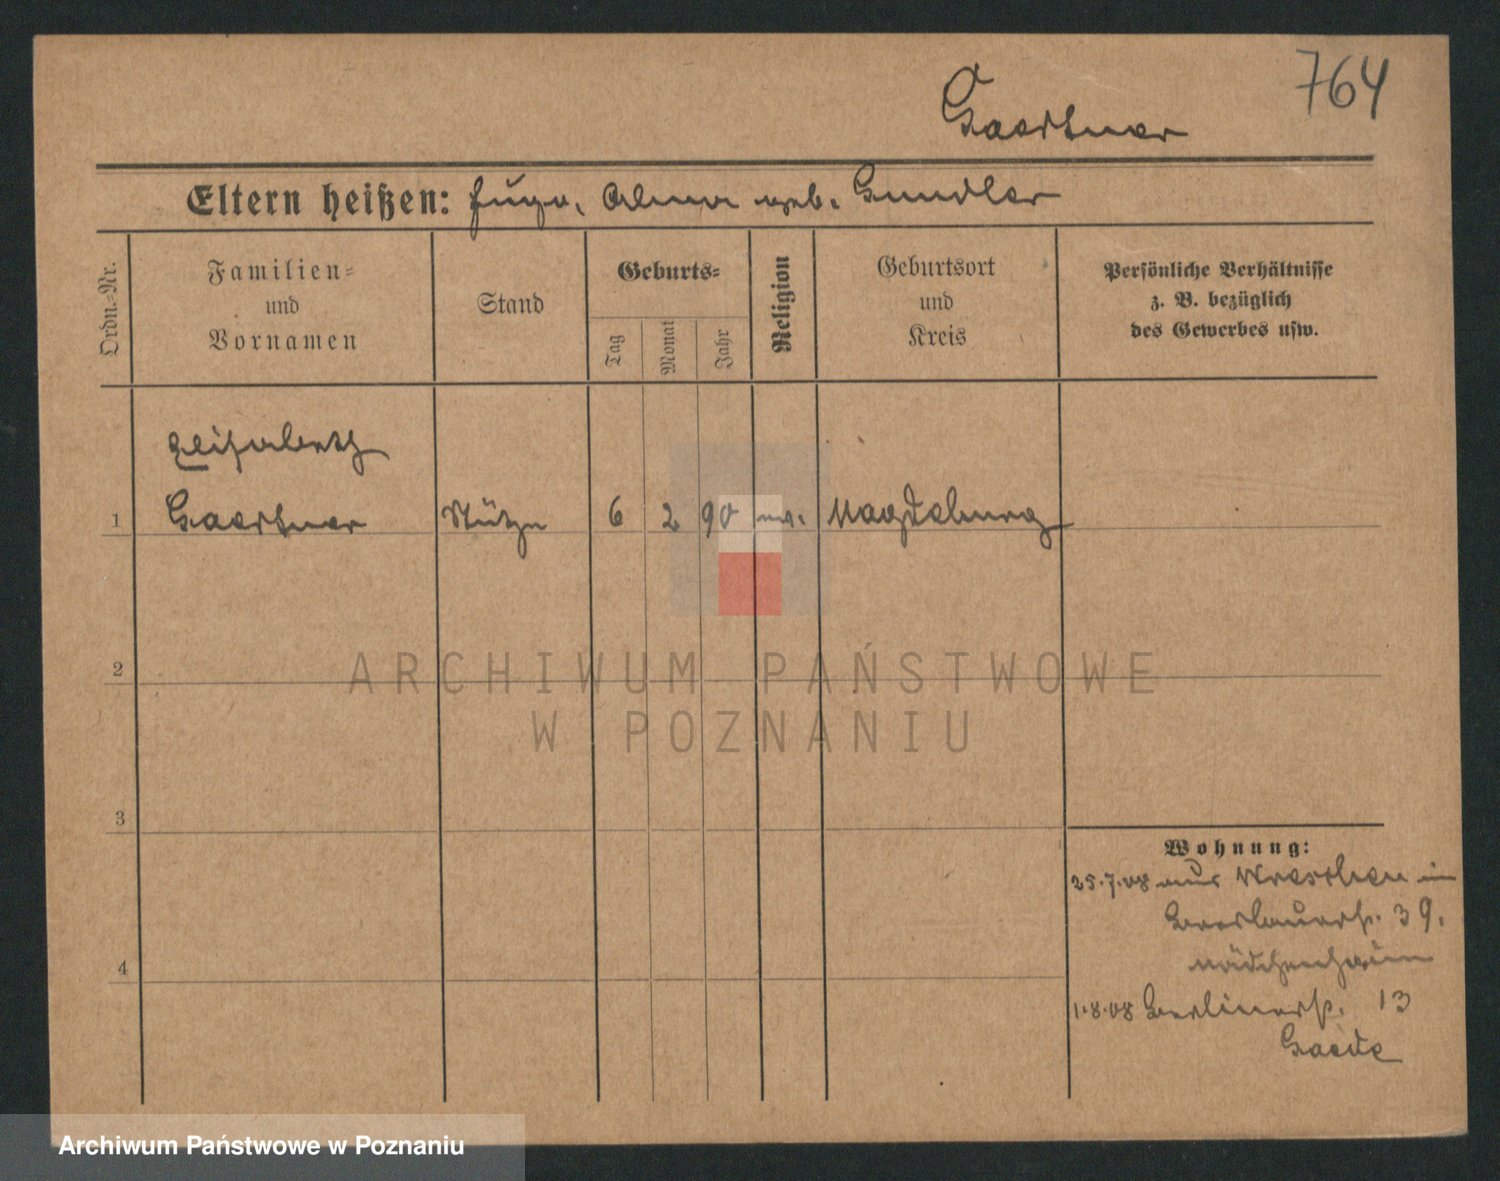 764
Gaertner
Eltern heißen: Hugo, Alma geb. Gundler
Ordn.-Nr.
Familien-
und
Vornamen
Stand
Geburts-
Tag
Monat
Jahr
Religion
Geburtsort
und
Kreis
Persönliche Verhältnisse
z. B. bezüglich
des Gewerbes usw.
Elisabeth
1 Gaertner Stütze 6 2 90 ev. Magdeburg
2
ARCHIWUM PAŃSTWOWE
W POZNANIU
3
Wohnung:
25.7.08 aus Wreschen in
Breslauerstr. 39.
Mädchenheim
4
1.8.08 Berlinerstr. 13
Gaede
Archiwum Państwowe w Poznaniu